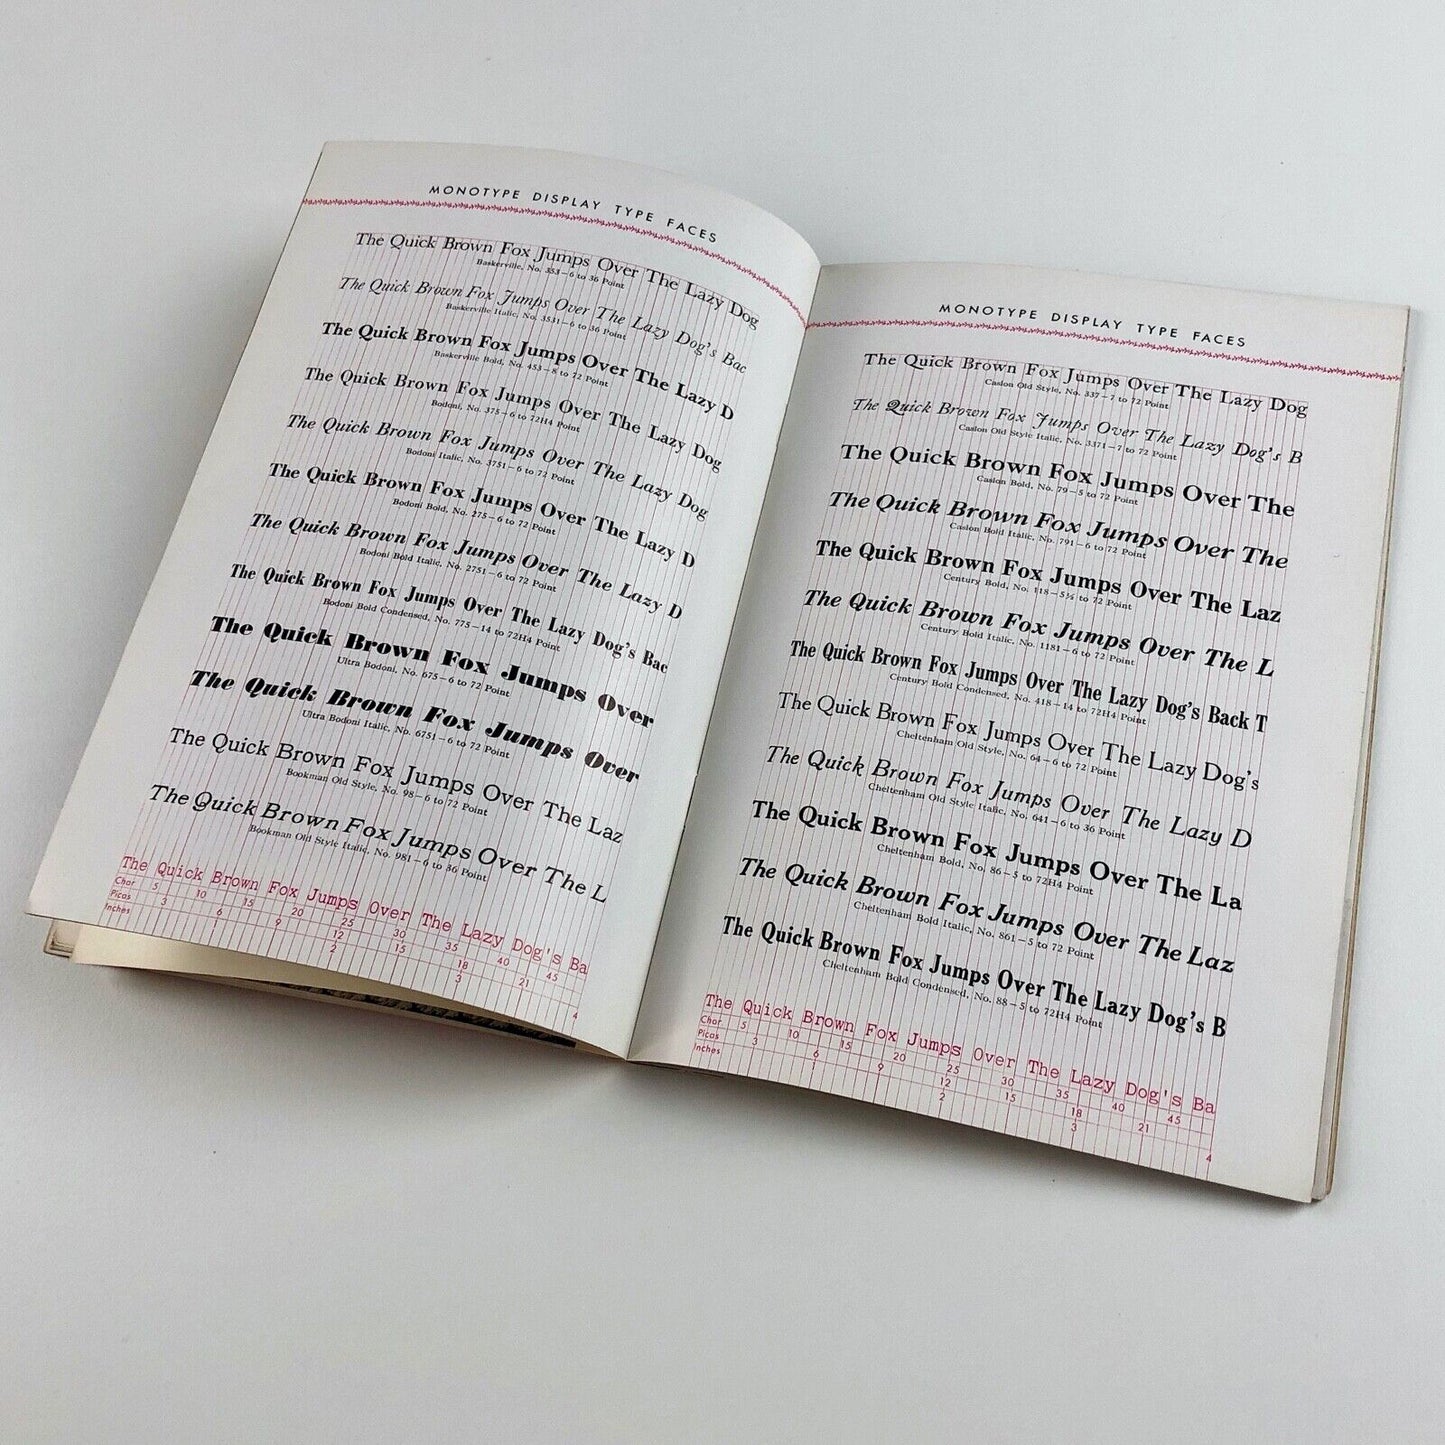 MONOTYPE DISPLAY TYPE FACES
The Quick Brown Fox Jumps Over The Lazy Dog
Baskerville, No. 353—6 to 36 Point
The Quick Brown Fox Jumps Over The Lazy Dog's Bac
Baskerville Italic, No. 3531—6 to 36 Point
The Quick Brown Fox Jumps Over The Lazy D
Baskerville Bold, No. 453—8 to 72 Point
The Quick Brown Fox Jumps Over The Lazy Dog
Bodoni, No. 375—6 to 72H4 Point
The Quick Brown Fox Jumps Over The Lazy Dog
Bodoni Italic, No. 3751—6 to 72 Point
The Quick Brown Fox Jumps Over The Lazy D
Bodoni Bold, No. 275—6 to 72 Point
The Quick Brown Fox Jumps Over The Lazy D
Bodoni Bold Italic, No. 2751—6 to 72 Point
The Quick Brown Fox Jumps Over The Lazy Dog's Bac
Bodoni Bold Condensed, No. 775—14 to 72H4 Point
The Quick Brown Fox Jumps Over
Ultra Bodoni, No. 675—6 to 72 Point
The Quick Brown Fox Jumps Over
Ultra Bodoni Italic, No. 6751—6 to 72 Point
The Quick Brown Fox Jumps Over The Laz
Bookman Old Style, No. 98—6 to 72 Point
The Quick Brown Fox Jumps Over The L
Bookman Old Style Italic, No. 981—6 to 36 Point
The Quick Brown Fox Jumps Over The Lazy Dog's Ba
Char 5 10 15 20 25 30 35 40 45
Picas 3 6 9 12 15 18 21
Inches 1 2 3 4
MONOTYPE DISPLAY TYPE FACES
The Quick Brown Fox Jumps Over The Lazy Dog
Caslon Old Style, No. 337—7 to 72 Point
The Quick Brown Fox Jumps Over The Lazy Dog's B
Caslon Old Style Italic, No. 3371—7 to 72 Point
The Quick Brown Fox Jumps Over The
Caslon Bold, No. 79—5 to 72 Point
The Quick Brown Fox Jumps Over The
Caslon Bold Italic, No. 791—6 to 72 Point
The Quick Brown Fox Jumps Over The Laz
Century Bold, No. 118—5½ to 72 Point
The Quick Brown Fox Jumps Over The L
Century Bold Italic, No. 1181—6 to 72 Point
The Quick Brown Fox Jumps Over The Lazy Dog's Back T
Century Bold Condensed, No. 418—14 to 72H4 Point
The Quick Brown Fox Jumps Over The Lazy Dog's
Cheltenham Old Style, No. 64—6 to 72 Point
The Quick Brown Fox Jumps Over The Lazy D
Cheltenham Old Style Italic, No. 641—6 to 36 Point
The Quick Brown Fox Jumps Over The La
Cheltenham Bold, No. 86—5 to 72H4 Point
The Quick Brown Fox Jumps Over The Laz
Cheltenham Bold Italic, No. 861—5 to 72 Point
The Quick Brown Fox Jumps Over The Lazy Dog's B
Cheltenham Bold Condensed, No. 88—5 to 72H4 Point
The Quick Brown Fox Jumps Over The Lazy Dog's Ba
Char 5 10 15 20 25 30 35 40 45
Picas 3 6 9 12 15 18 21
Inches 1 2 3 4